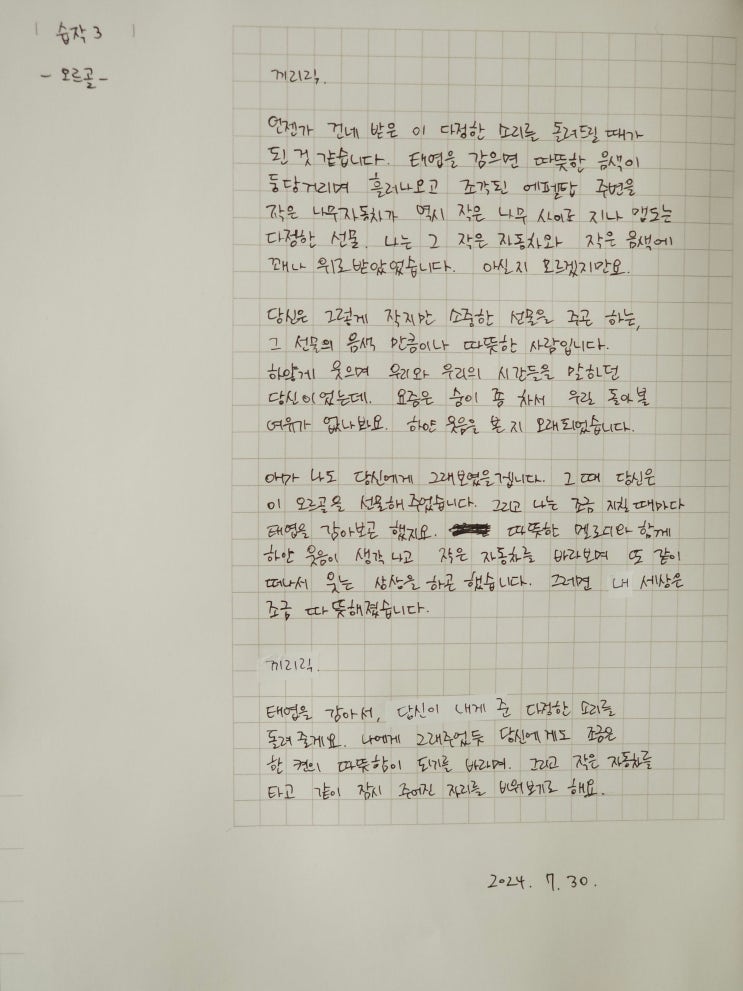 습작 3
- 오르골 -
끼리릭.
언젠가 건네 받은 이 다정한 소리를 돌려드릴 때가
된 것 같습니다. 태엽을 감으면 따뜻한 음색이
둥당거리며 흘러나오고 조각된 에펠탑 주변을
작은 나무자동차가 역시 작은 나무 사이로 지나 맴도는
다정한 선물. 나는 그 작은 자동차와 작은 음색에
꽤나 위로받았었습니다. 아실지 모르겠지만요.
당신은 그렇게 작지만 소중한 선물을 주곤 하는,
그 선물의 음색 만큼이나 따뜻한 사람입니다.
하얗게 웃으며 우리와 우리의 시간들을 말하던
당신이었는데. 요즘은 숨이 좀 차서 우릴 돌아볼
여유가 없나봐요. 하얀 웃음을 본 지 오래되었습니다.
아마 나도 당신에게 그래보였을겁니다. 그 때 당신은
이 오르골을 선물해 주었습니다. 그리고 나는 조금 지칠 때마다
태엽을 감아보곤 했지요. 따뜻한 멜로디와 함께
하얀 웃음이 생각나고 작은 자동차를 바라보며 또 같이
떠나서 웃는 상상을 하곤 했습니다. 그러면 내 세상은
조금 따뜻해졌습니다.
끼리릭.
태엽을 감아서, 당신이 내게 준 다정한 소리를
돌려 줄게요. 나에게 그래주었듯 당신에게도 조금은
한 켠의 따뜻함이 되기를 바라며. 그리고 작은 자동차를
타고 같이 잠시 주어진 자리를 비워보기로 해요.
2024. 7. 30.